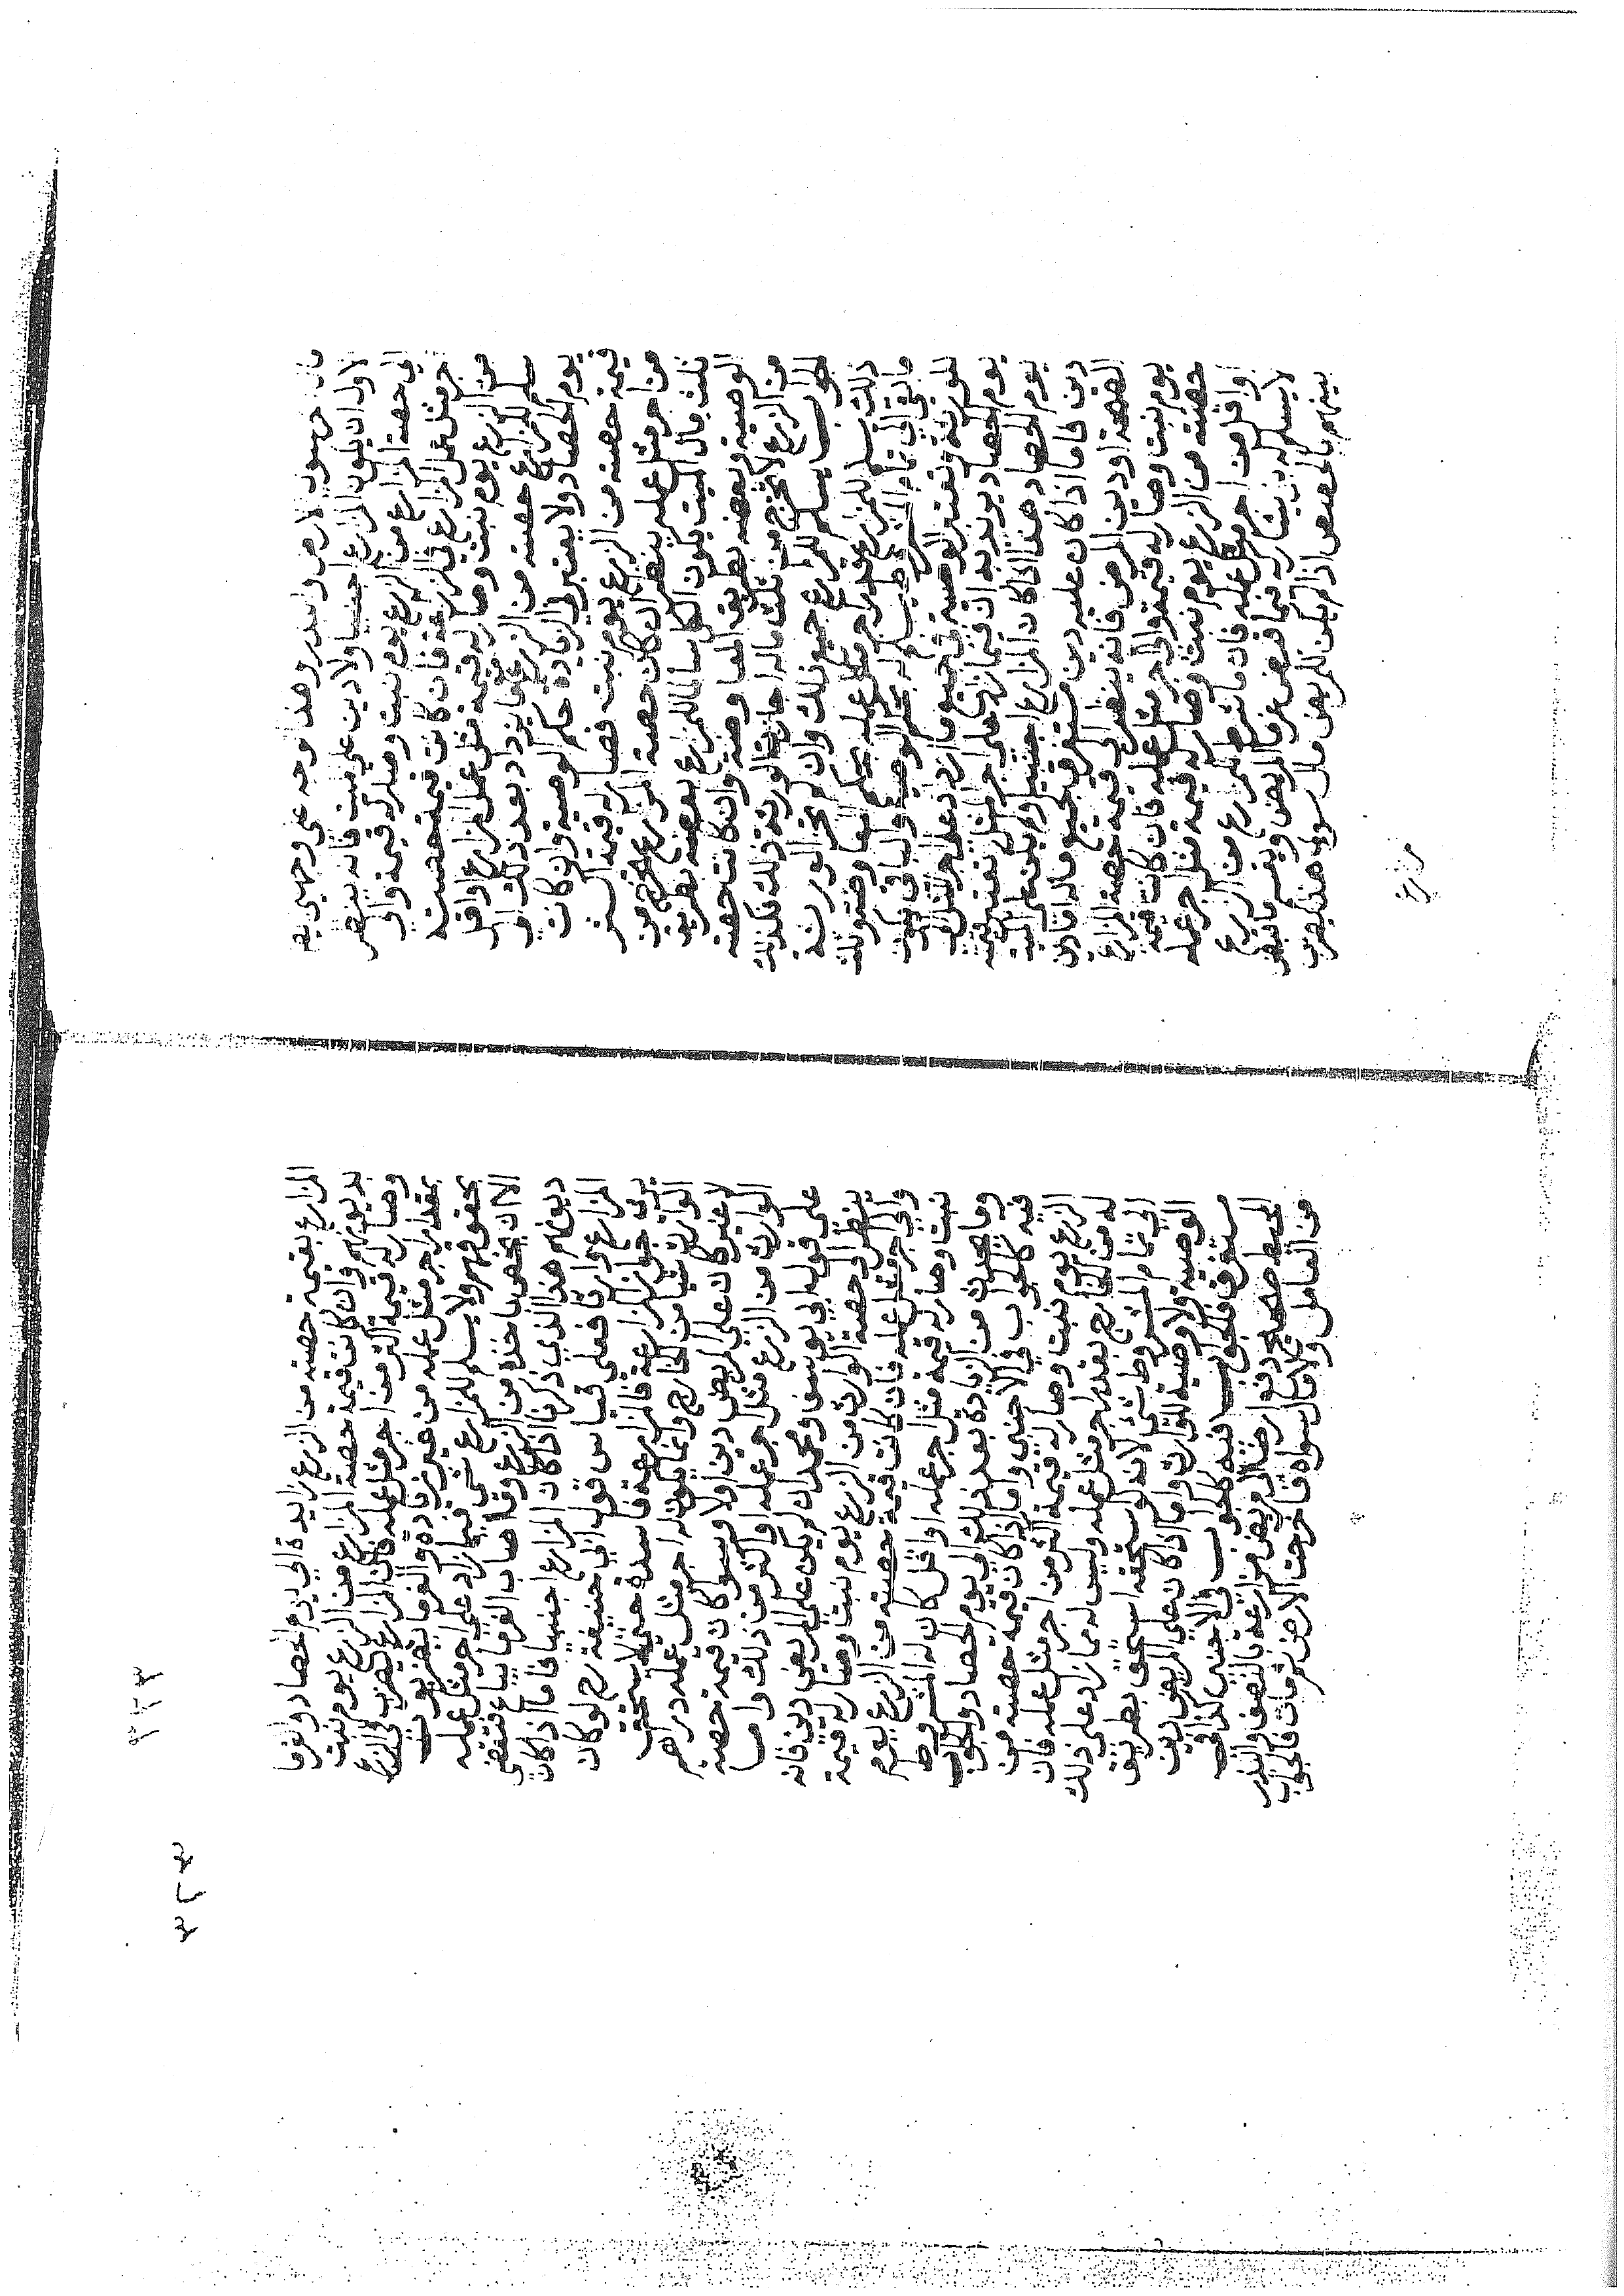 كان من جهته رب الارض والبذر وهذا الوجه على وجهين
الاول ان يكون المزارع اجنبيا ولا دين على الميت فانه ينظر
الى حصة المزارع من الزرع يوم نبت وصار له قيمة والى
اجر مثل عمل المزارع في المزارعة فان كانت قيمة حصته
من الزرع يوم نبت وصار له قيمة مثل عمل المزارع او اقل
سلم للمزارع حصته من الزرع ثم ما يزداد بعد ذلك الى
يوم الحصاد ولا يعتبر في الزيادة حكم الوصية وان كانت
قيمة حصته من الزرع يوم نبت فصار له قيمة اكثر
من اجر مثل عمله ينظر ان كان حصة المزارع تخرج من
ثلث مال الميت يكون الكل سالما للمزارع بعضه بطريق
الوصية وبعضه بطريق المعاوضة وان كانت حصته
من الزرع لا تخرج من ثلث ماله اجازت الورثة ذلك فكذلك
الجواب يسلم للمزارع جميع ذلك وان لم تجز الورثة
ذلك يسلم للمزارع قدر اجر مثل عمله بحكم المعاوضة وثلث
ما بقي الى تمام المشروط يسلم له بحكم الوصية والباقي يكون
للورثة وتعتبر الوصية في جميع ما ازداد على اجر المثل الى
يوم الحصاد يريد به ان فيما زاد على اجر المثل تعتبر قيمته
يوم الحصاد هذا اذا كان المزارع اجنبيا ولم يكن على الميت
دين فاما اذا كان عليه دين مستغرق بجميع ماله اما دين
الصحة او دين المرض فانه ينظر الى قيمة حصة المزارع
يوم نبت وصار له قيمة والى اجر مثل عمله فان كانت قيمة
حصته من الزرع يوم نبت وصار له قيمة مثل اجر عمله
او اقل من اجر مثل عمله فان ما شرط للمزارع من الزرع
لا يسلم له بل يشاركه فيما قبض غرماء المريض ويقسم ما قبض
بينهم بالحصص اذا لم يكن للمريض مال سوى هذا فيضرب
المزارع بقيمة حصته من الزرع زايدة الى يوم الحصاد والغرما
بديونهم وان كانت قيمة حصة المزارع من الزرع يوم نبت
وصار له قيمة اكثر من اجر مثل عمله فان المزارع يضرب في الزرع
بمقدار اجر مثل عمله من غير زيادة والغرما يضربون
بحقوقهم ولا يسلم للمزارع شي فيما زاد على اجر مثل عمله
الا ان بعض ما اخذه من الزرع وما اصاب الغرما يباع فتقضى
ديونهم هذا الذي ذكرنا اذا كان المزارع اجنبيا فاما اذا كان
المزارع وارثا فعلى قياس قول ابي حنيفة رح لو كان
يرى جواز المزارعة فالمزارعة فاسدة حتى لا يستحق
الوارث شيا من الخارج وانما يكون له اجر مثل عمله دراهم
لا غير كان على المريض دين او لا وسوا كان قيمة حصة
الوارث من الزرع مثل اجر عمله او اكثر من ذلك واما
على قول ابي يوسف ومحمد ان لم يكن على المريض دين فانه
ينظر الى حصة الوارث من الزرع يوم نبت وصار له قيمة
والى اجر مثل عمله فان كانت قيمة حصته من الزرع يوم
نبت وصار له قيمة مثل اجر عمله او اقل كان له المشروط
وما يحدث من الزيادة بعد ذلك الى يوم الحصاد والجواب
فيه كالجواب في الاجنبي واما اذا كان قيمة حصته من
الزرع يوم نبت وصار له قيمة اكثر من اجر مثل عمله فان
له من الخارج بقدر اجر مثل عمله وليس له مما زاد على ذلك
الى تمام المشروط شي لانه لو استحقه استحق بطريق
الوصية ولا وصية للوارث واما اذا كان على المريض دين
مستغرق فالجواب فيه كالجواب في الاجنبي كذا في
المحيط دفع ارضا الى مريض مزارعة بالنصف والبذر
من العامل ولا مال سواه فاخرجت الارض ثم مات فالجواب